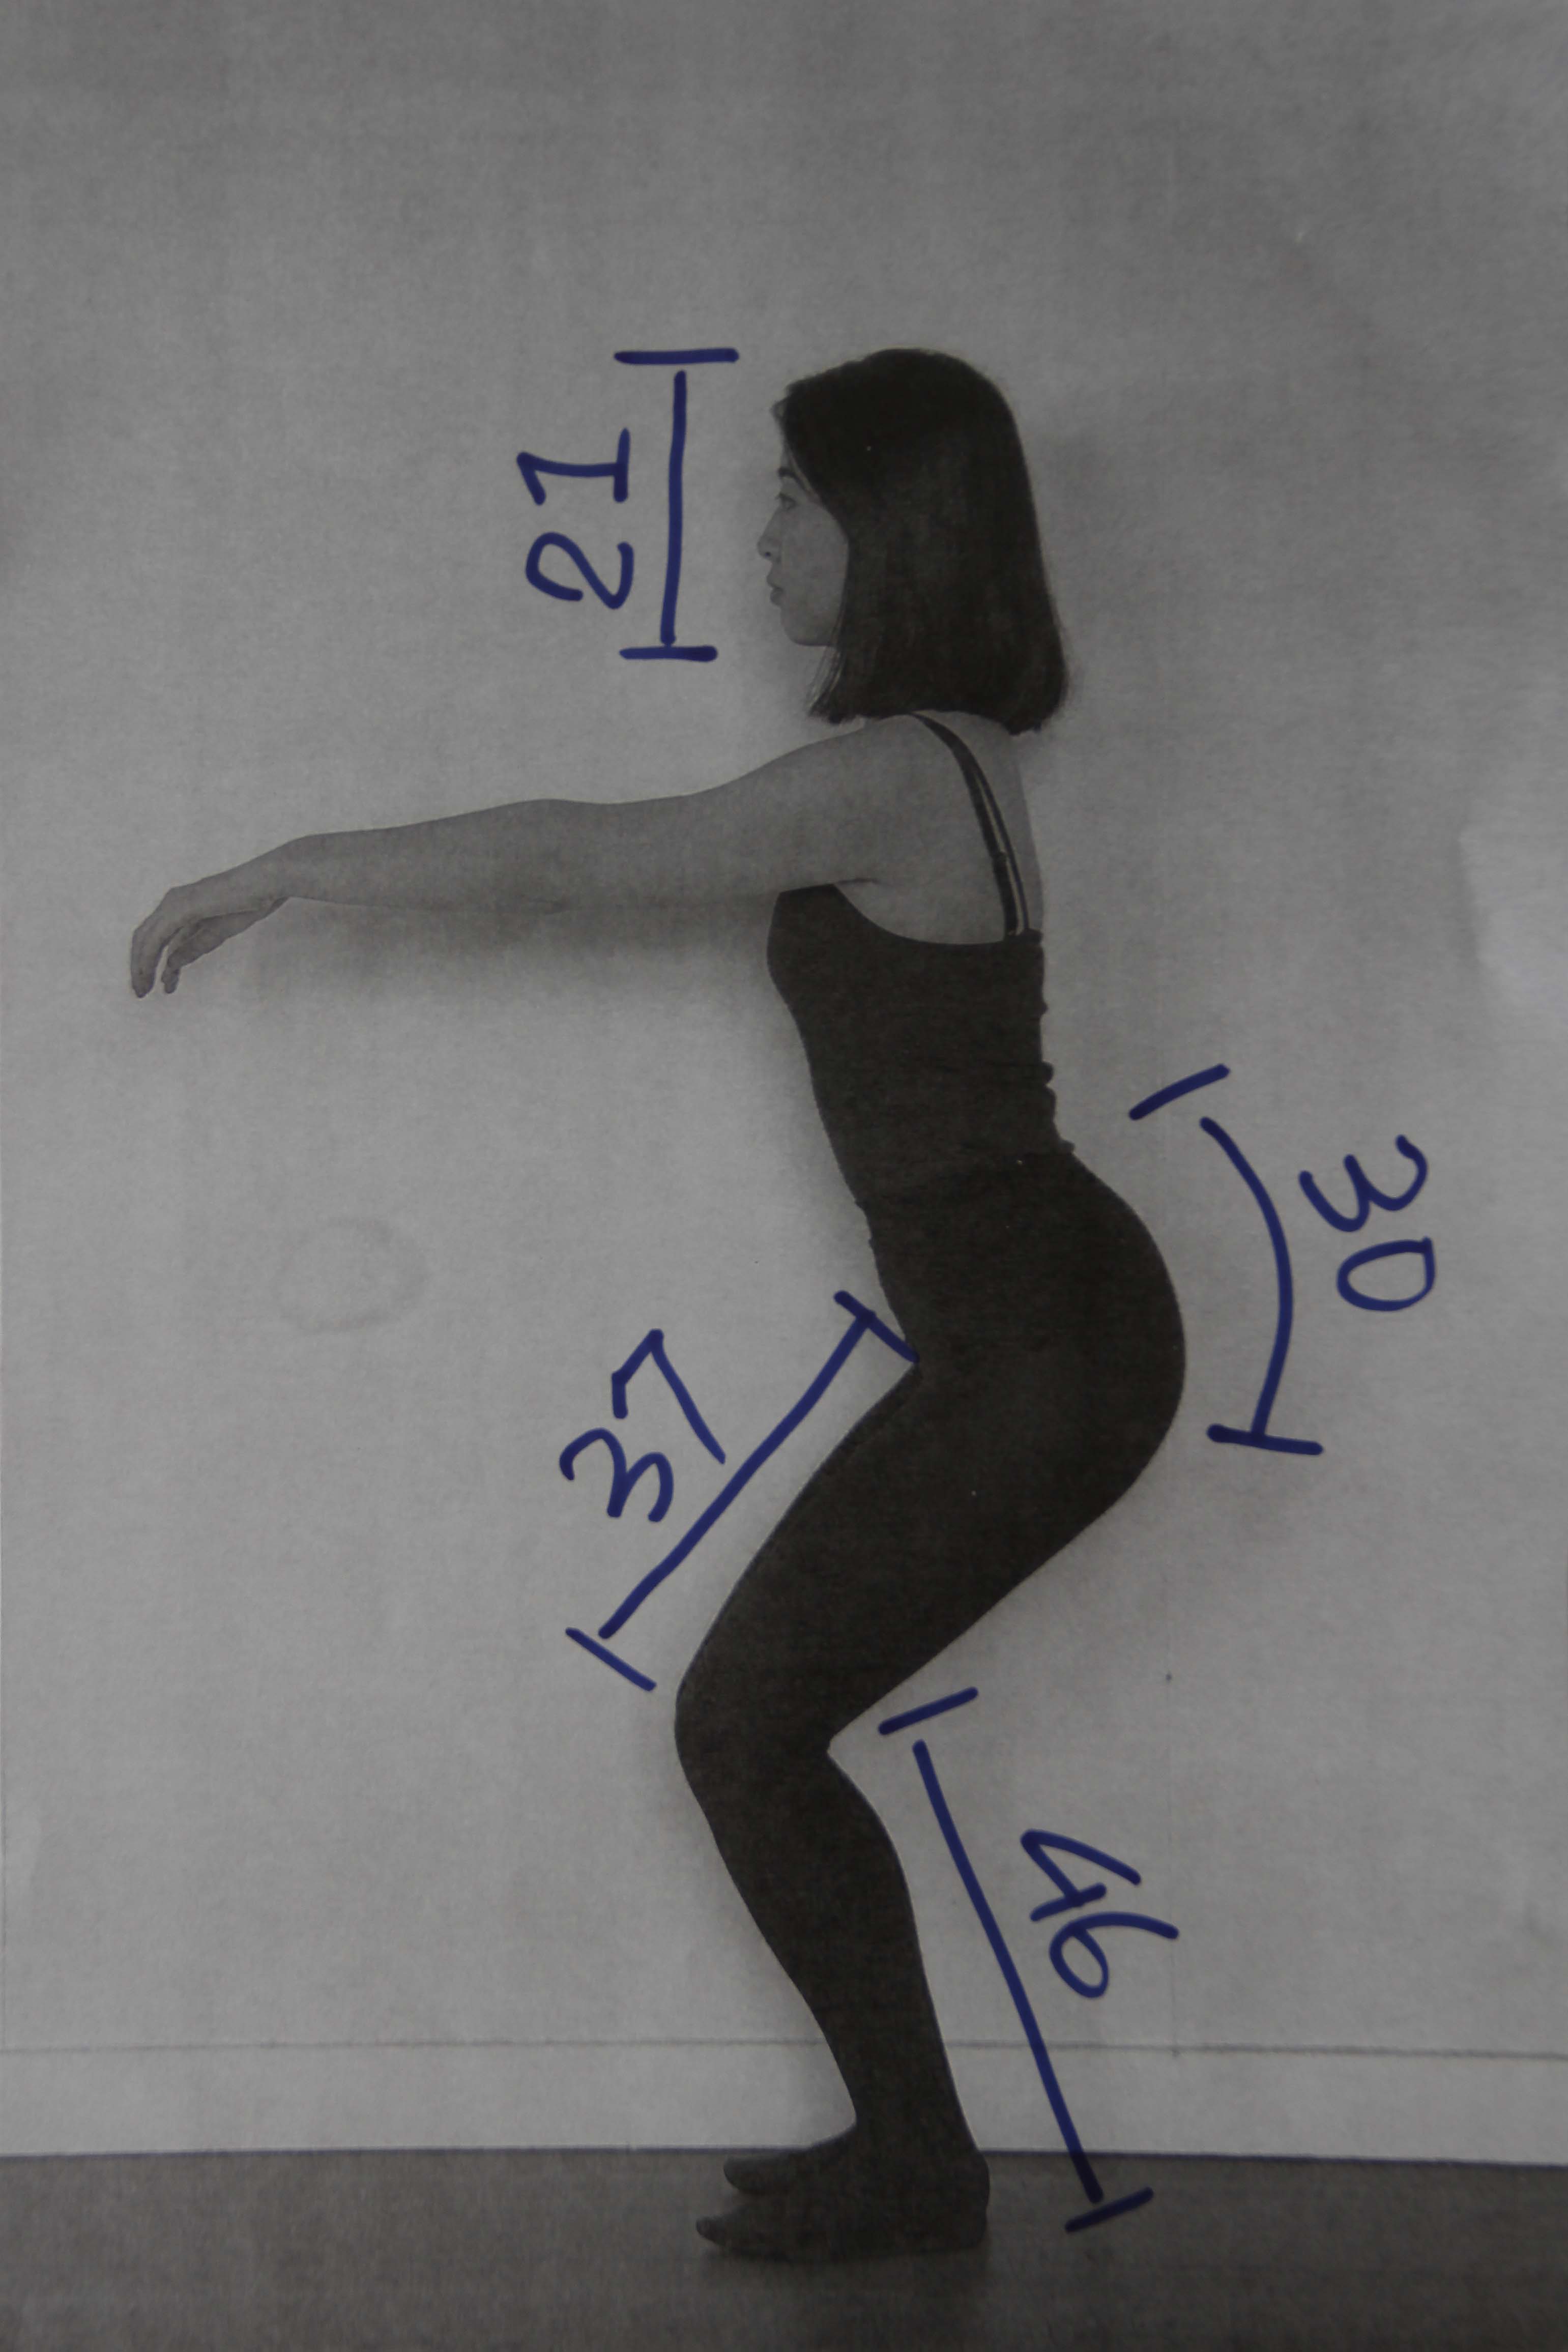 21
30
37
46